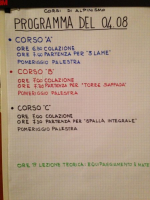 CORSI DI ALPINISMO
PROGRAMMA DEL 04.08
• CORSO "A"
ORE 6.30 COLAZIONE
ORE 7.00 PARTENZA PER "B. LAME"
POMERIGGIO PALESTRA
• CORSO "B"
ORE 7.00 COLAZIONE
ORE 7.30 PARTENZA PER "TORRE
POMERIGGIO PALESTRA
• CORSO "C"
ORE 7.00 COLAZIONE
ORE 7.30 PARTENZA PER "SPALLA INTEGRALE"
POMERIGGIO PALESTRA
ORE LEZIONE TEORICA: EQUIPAGGIAMENTO E